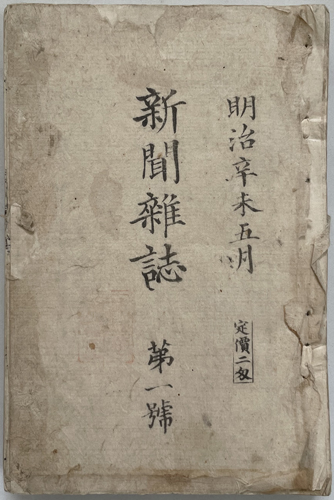 明治辛未五月
定價二匁
新聞雜誌 第一號